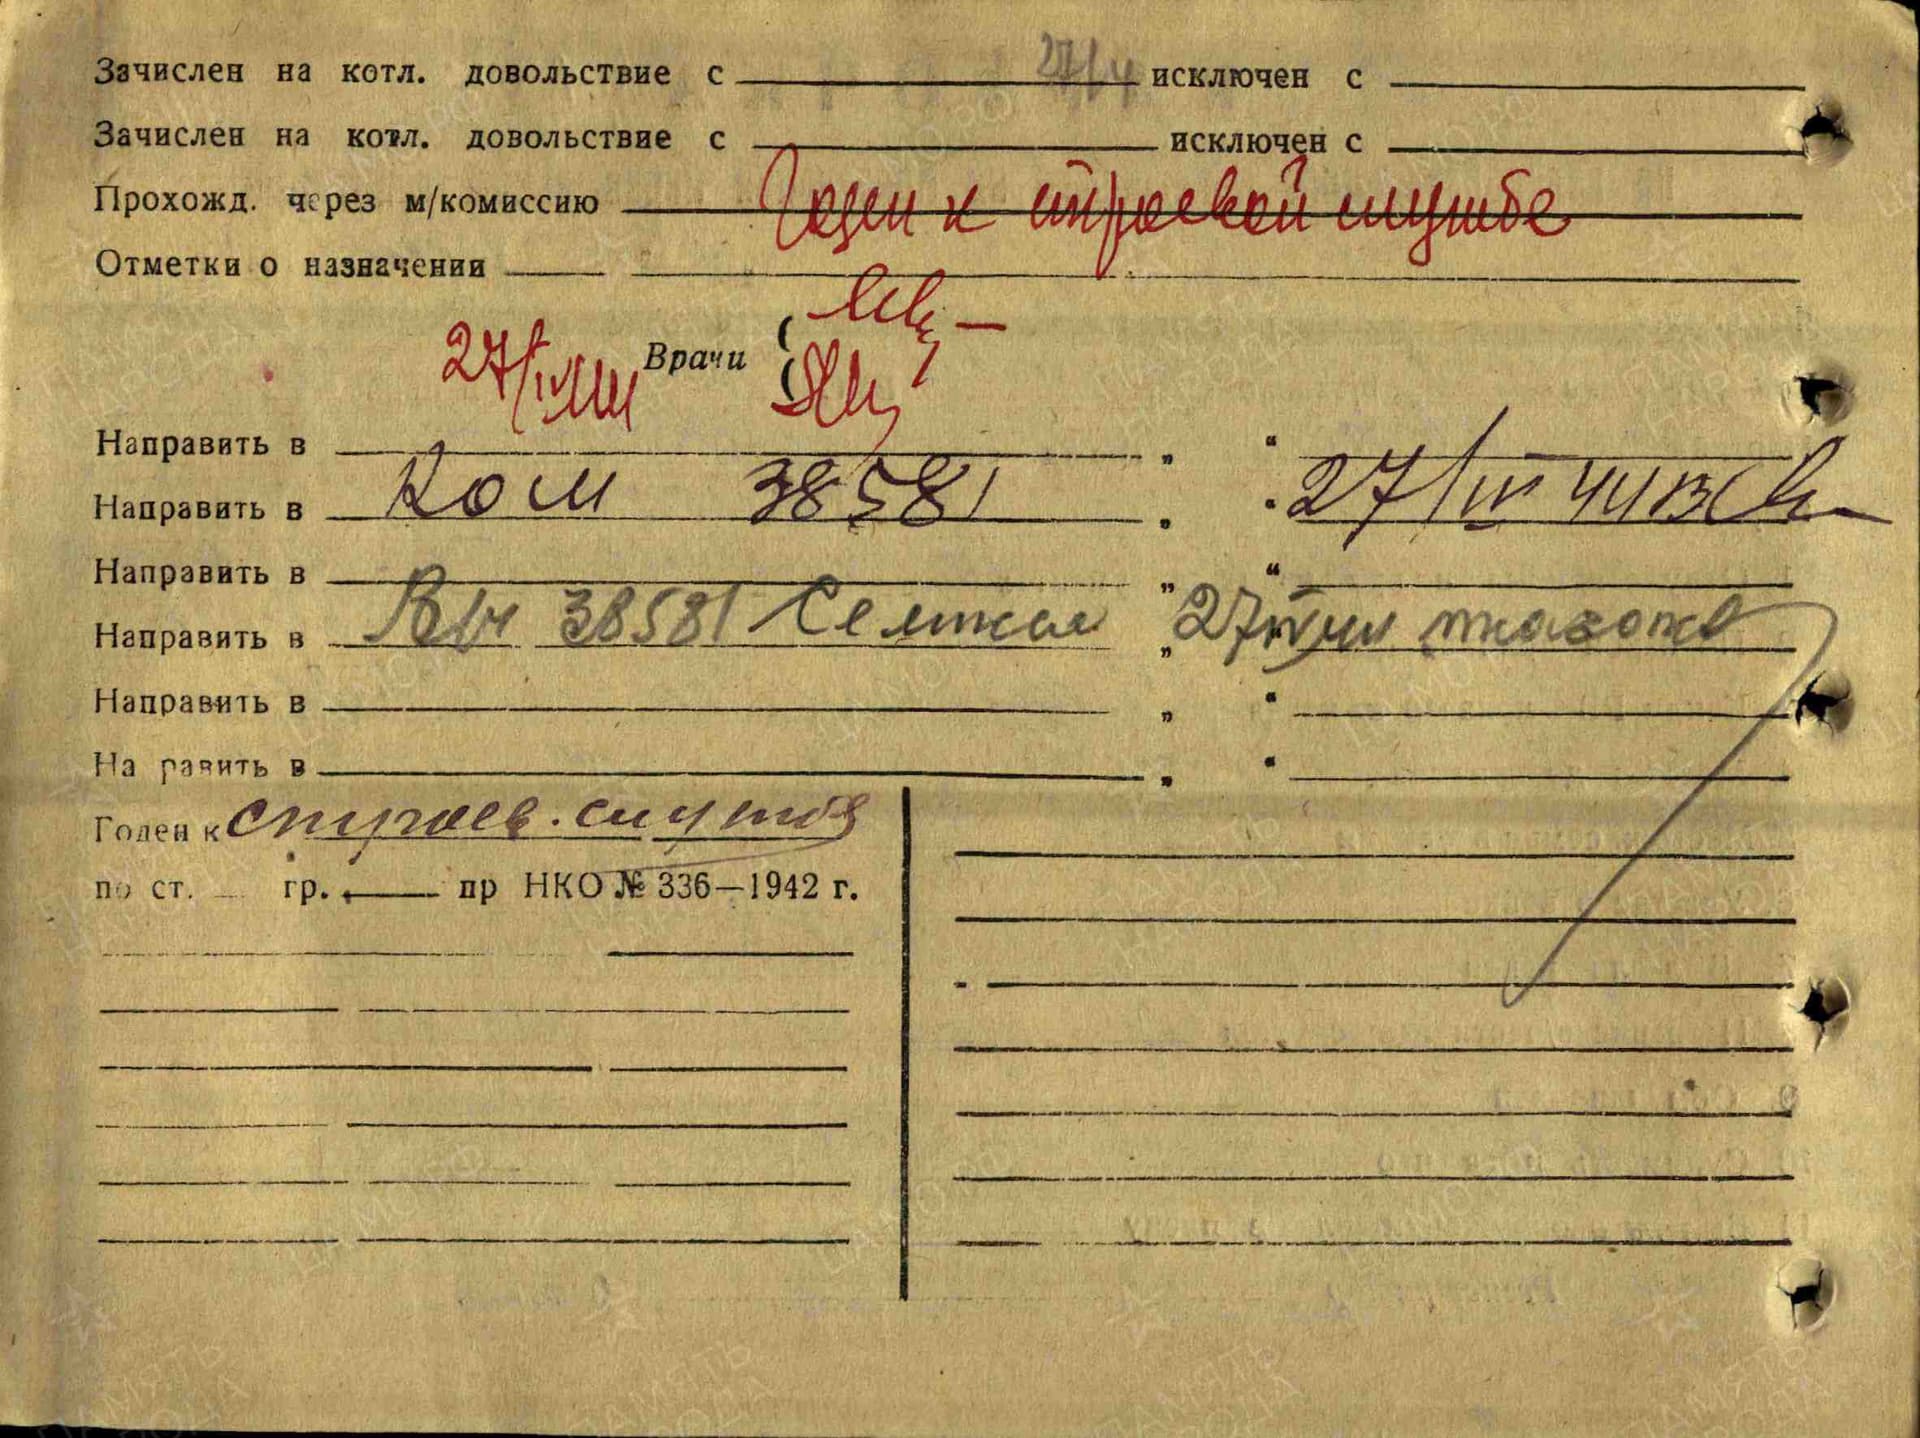 Зачислен на котл. довольствие с 27/4 исключен с
Зачислен на котл. довольствие с исключен с
Прохожд. через м/комиссию Годен к строевой службе
Отметки о назначении
27/IV Врачи
Направить в „ “
Направить в Ком 38581 „ “ 27/IV 44
Направить в „ “
Направить в В/ч 38581 27 IV 44
Направить в „ “
На равить в „ “
Годен к строев. службе
по ст. гр. пр НКО № 336—1942 г.